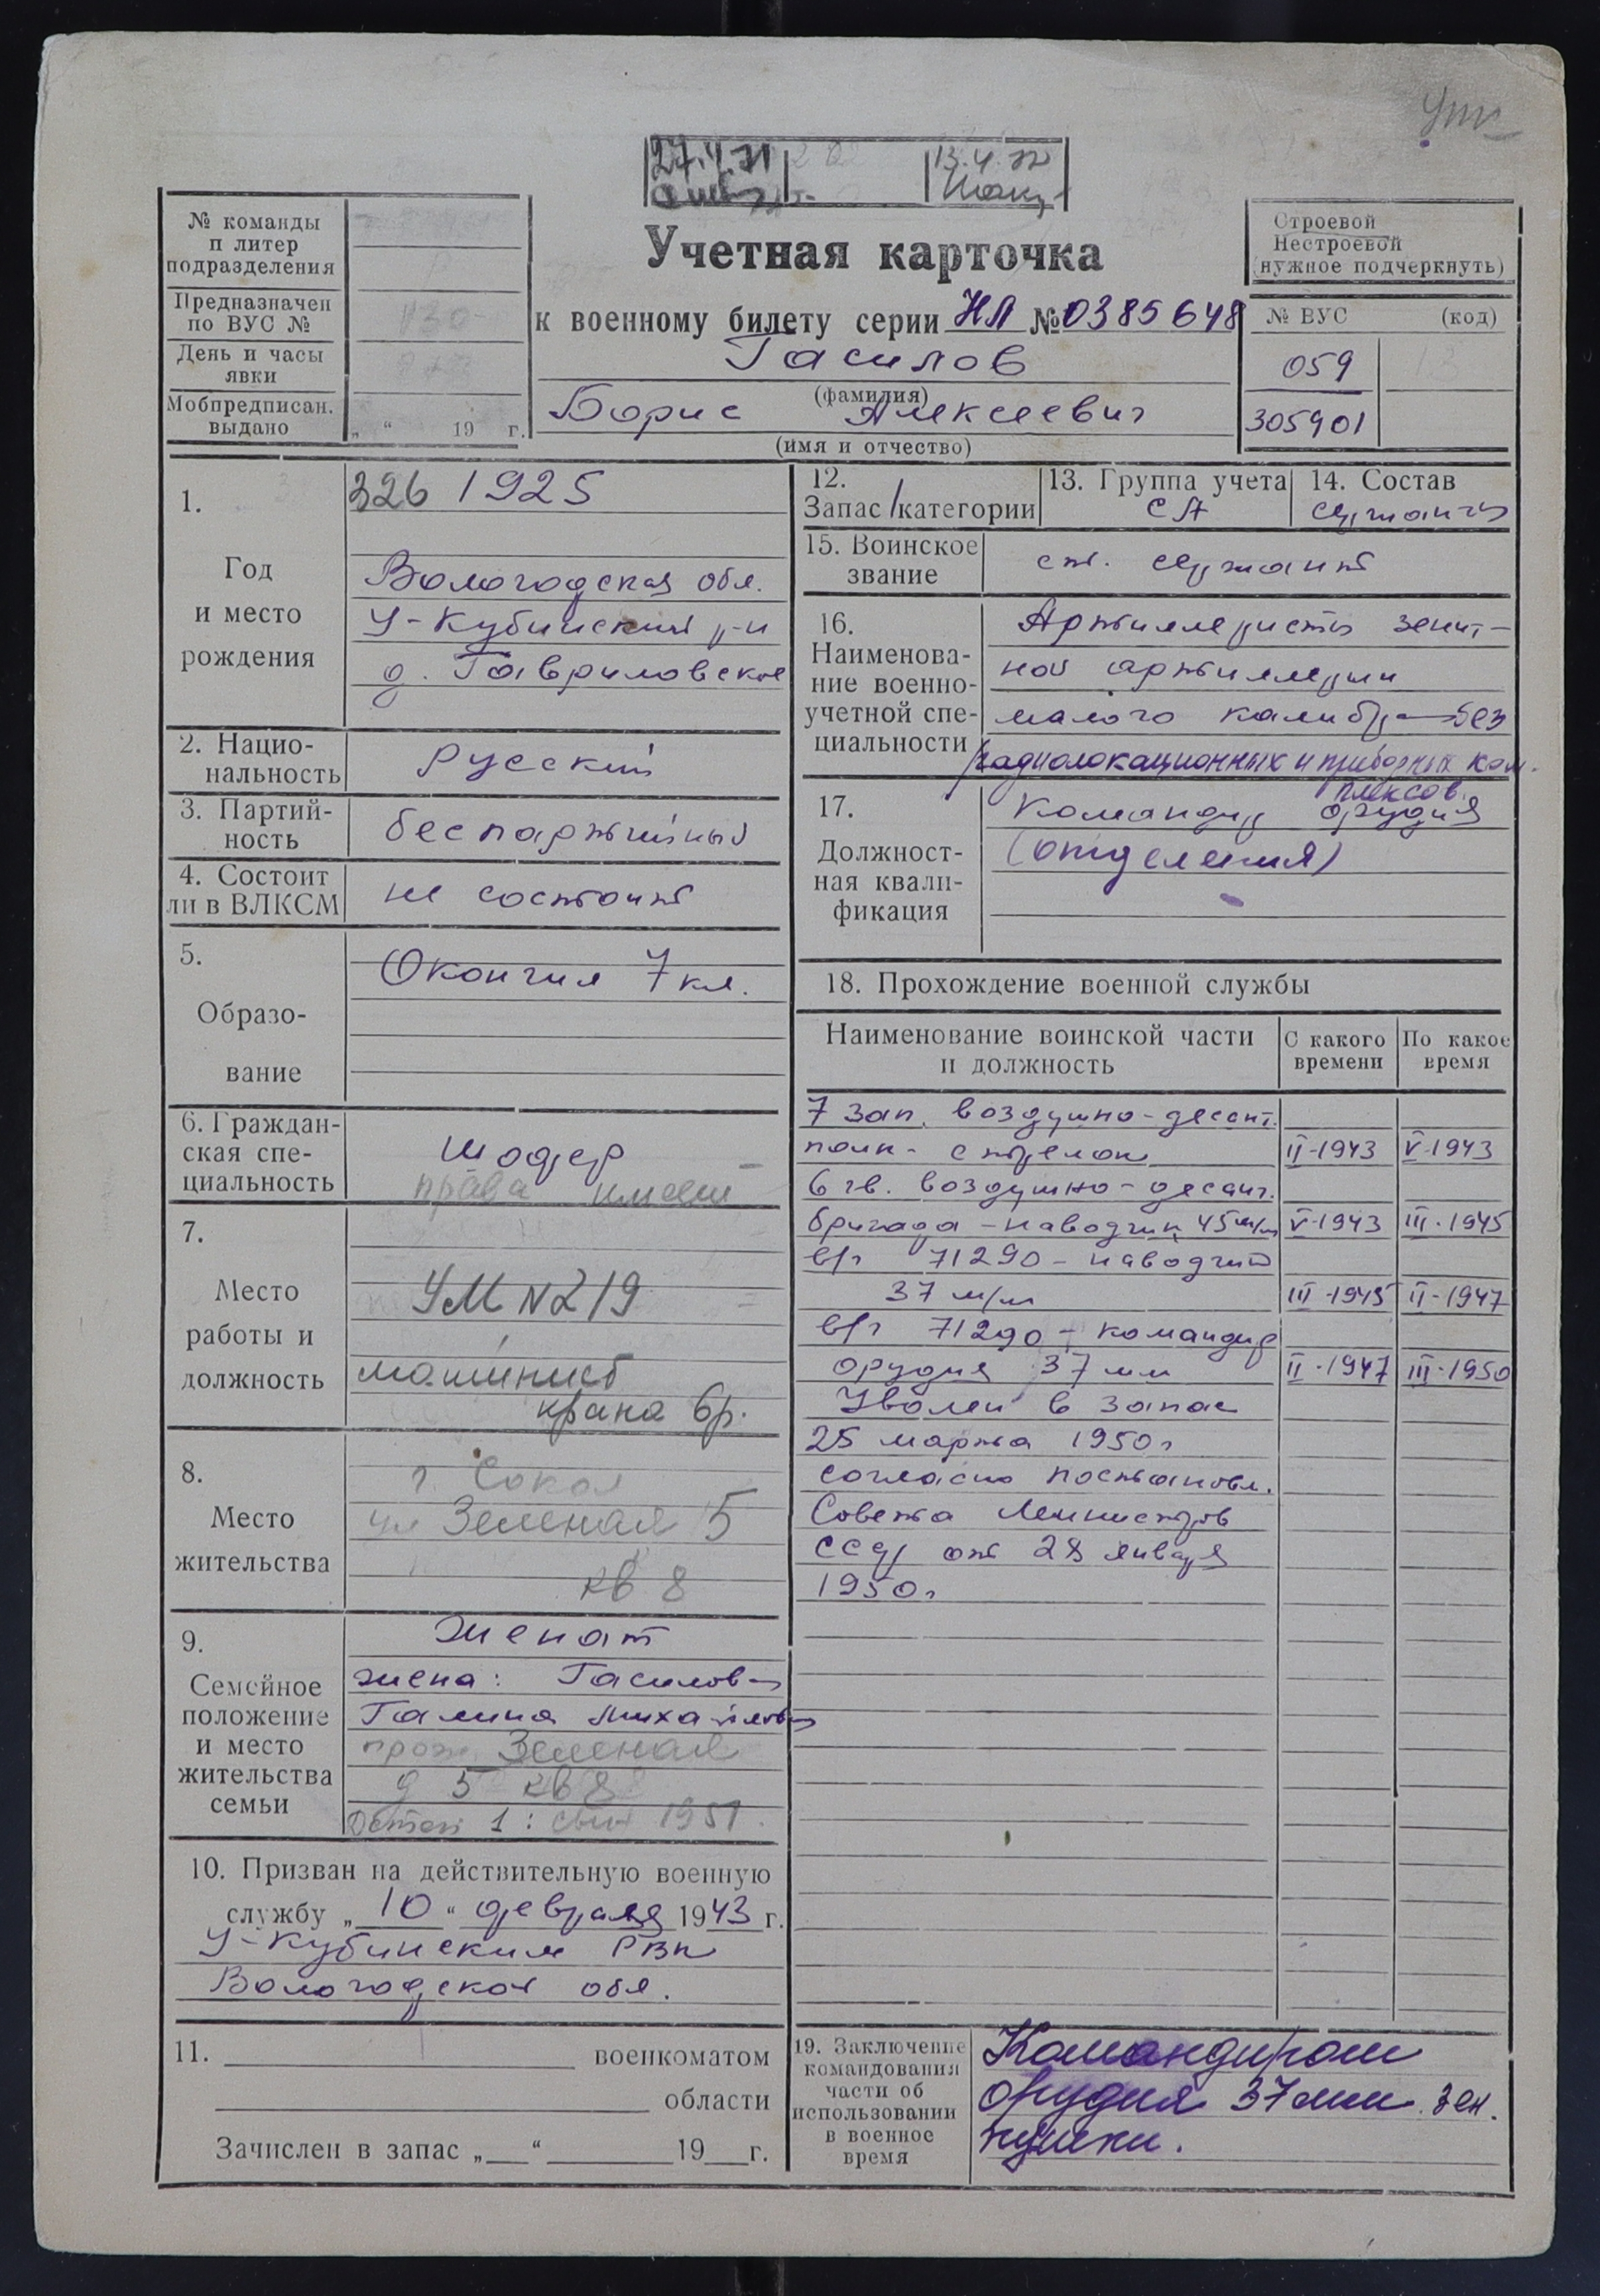 27.4.71
13.4.72
№ команды
п литер
подразделения
Предназначен
по ВУС №
День и часы
явки
Мобпредписан.
выдано
„ “ 19 г.
Учетная карточка
к военному билету серии НЛ № 0385648
Гасилов
(фамилия)
Борис Алексеевич
(имя и отчество)
Строевой
Нестроевой
(нужное подчеркнуть)
№ ВУС (код)
059
305901
1.
Год
и место
рождения
326 1925
Вологодская обл.
У-Кубинский р-н
д. Гавриловское
2. Нацио-
нальность
русский
3. Партий-
ность
беспартийный
4. Состоит
ли в ВЛКСМ
не состоит
5.
Образо-
вание
Окончил 7 кл.
6. Граждан-
ская спе-
циальность
шофер
права имеет
7.
Место
работы и
должность
УМ N 219
машинист
крана 6р.
8.
Место
жительства
г. Сокол
ул Зеленая 5
кв 8
9.
Семейное
положение
и место
жительства
семьи
Женат
жена: Гасилова
Галина Михайловна
прож. Зеленая
д 5 кв 8
Детей 1: сын 1951.
10. Призван на действительную военную
службу „ 10 “ февраля 1943 г.
У-Кубинским РВК
Вологодской обл.
11. военкоматом
области
Зачислен в запас „ “ 19 г.
12.
Запас 1 категории
13. Группа учета
СА
14. Состав
сержанты
15. Воинское
звание
ст. сержант
16.
Наименова-
ние военно-
учетной спе-
циальности
Артиллеристы зенит-
ной артиллерии
малого калибра — без
радиолокационных и приборных ком-
плексов.
17.
Должност-
ная квали-
фикация
Командир орудия
(отделения)
18. Прохождение военной службы
Наименование воинской части
и должность
С какого
времени
По какое
время
7 зап. воздушно-десант.
полк - стрелок II-1943 V-1943
6 гв. воздушно-десант.
бригада - наводчик 45 м/м V-1943 III-1945
в/ч 71290 - наводчик
37 м/м III-1945 II-1947
в/ч 71290 - командир
орудия 37 мм II-1947 III-1950
Уволен в запас
25 марта 1950г
согласно постановл.
Совета Министров
СССР от 28 января
1950г
19. Заключение
командования
части об
использовании
в военное
время
Командиром
орудия 37 мм зен.
пушки.